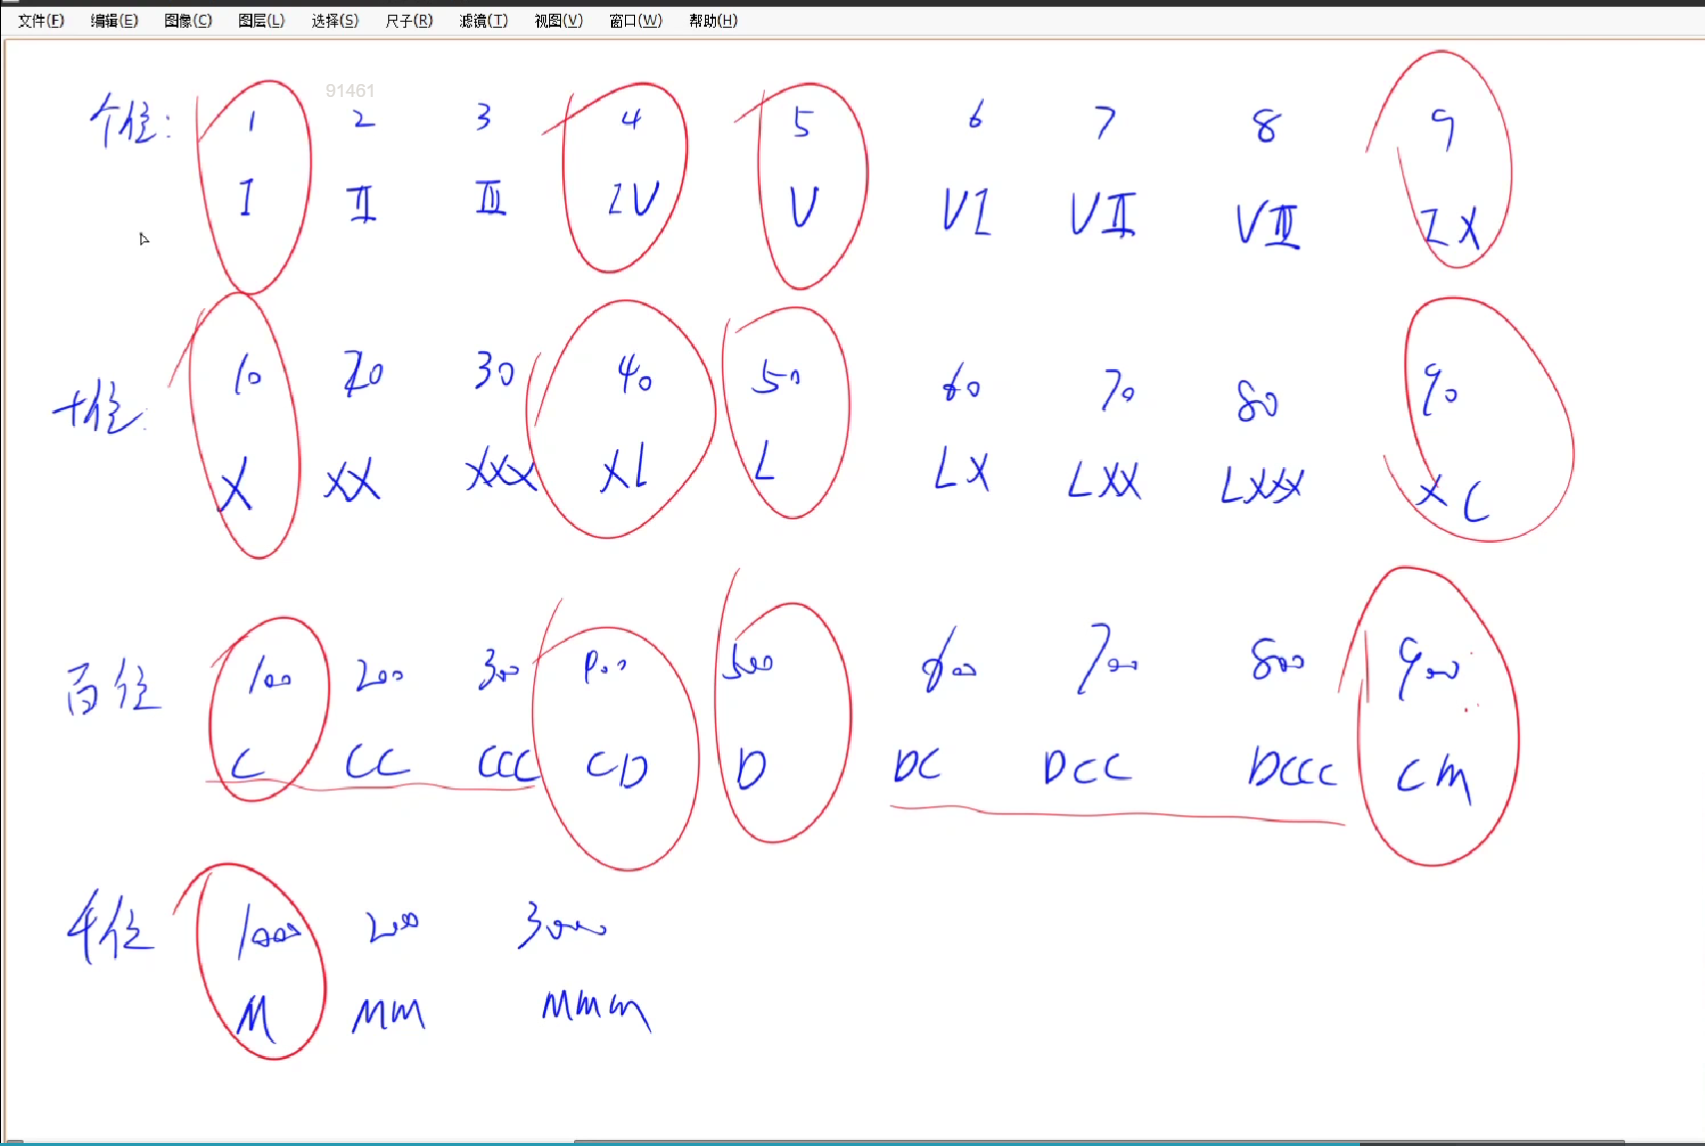 文件(F) 编辑(E) 图像(C) 图层(L) 选择(S) 尺子(R) 滤镜(T) 视图(V) 窗口(W) 帮助(H)
91461
个位: 1 2 3 4 5 6 7 8 9
I II III IV V VI VII VIII IX
十位: 10 20 30 40 50 60 70 80 90
X XX XXX XL L LX LXX LXXX XC
百位 100 200 300 400 500 600 700 800 900
C CC CCC CD D DC DCC DCCC CM
千位 1000 2000 3000
M MM MMM